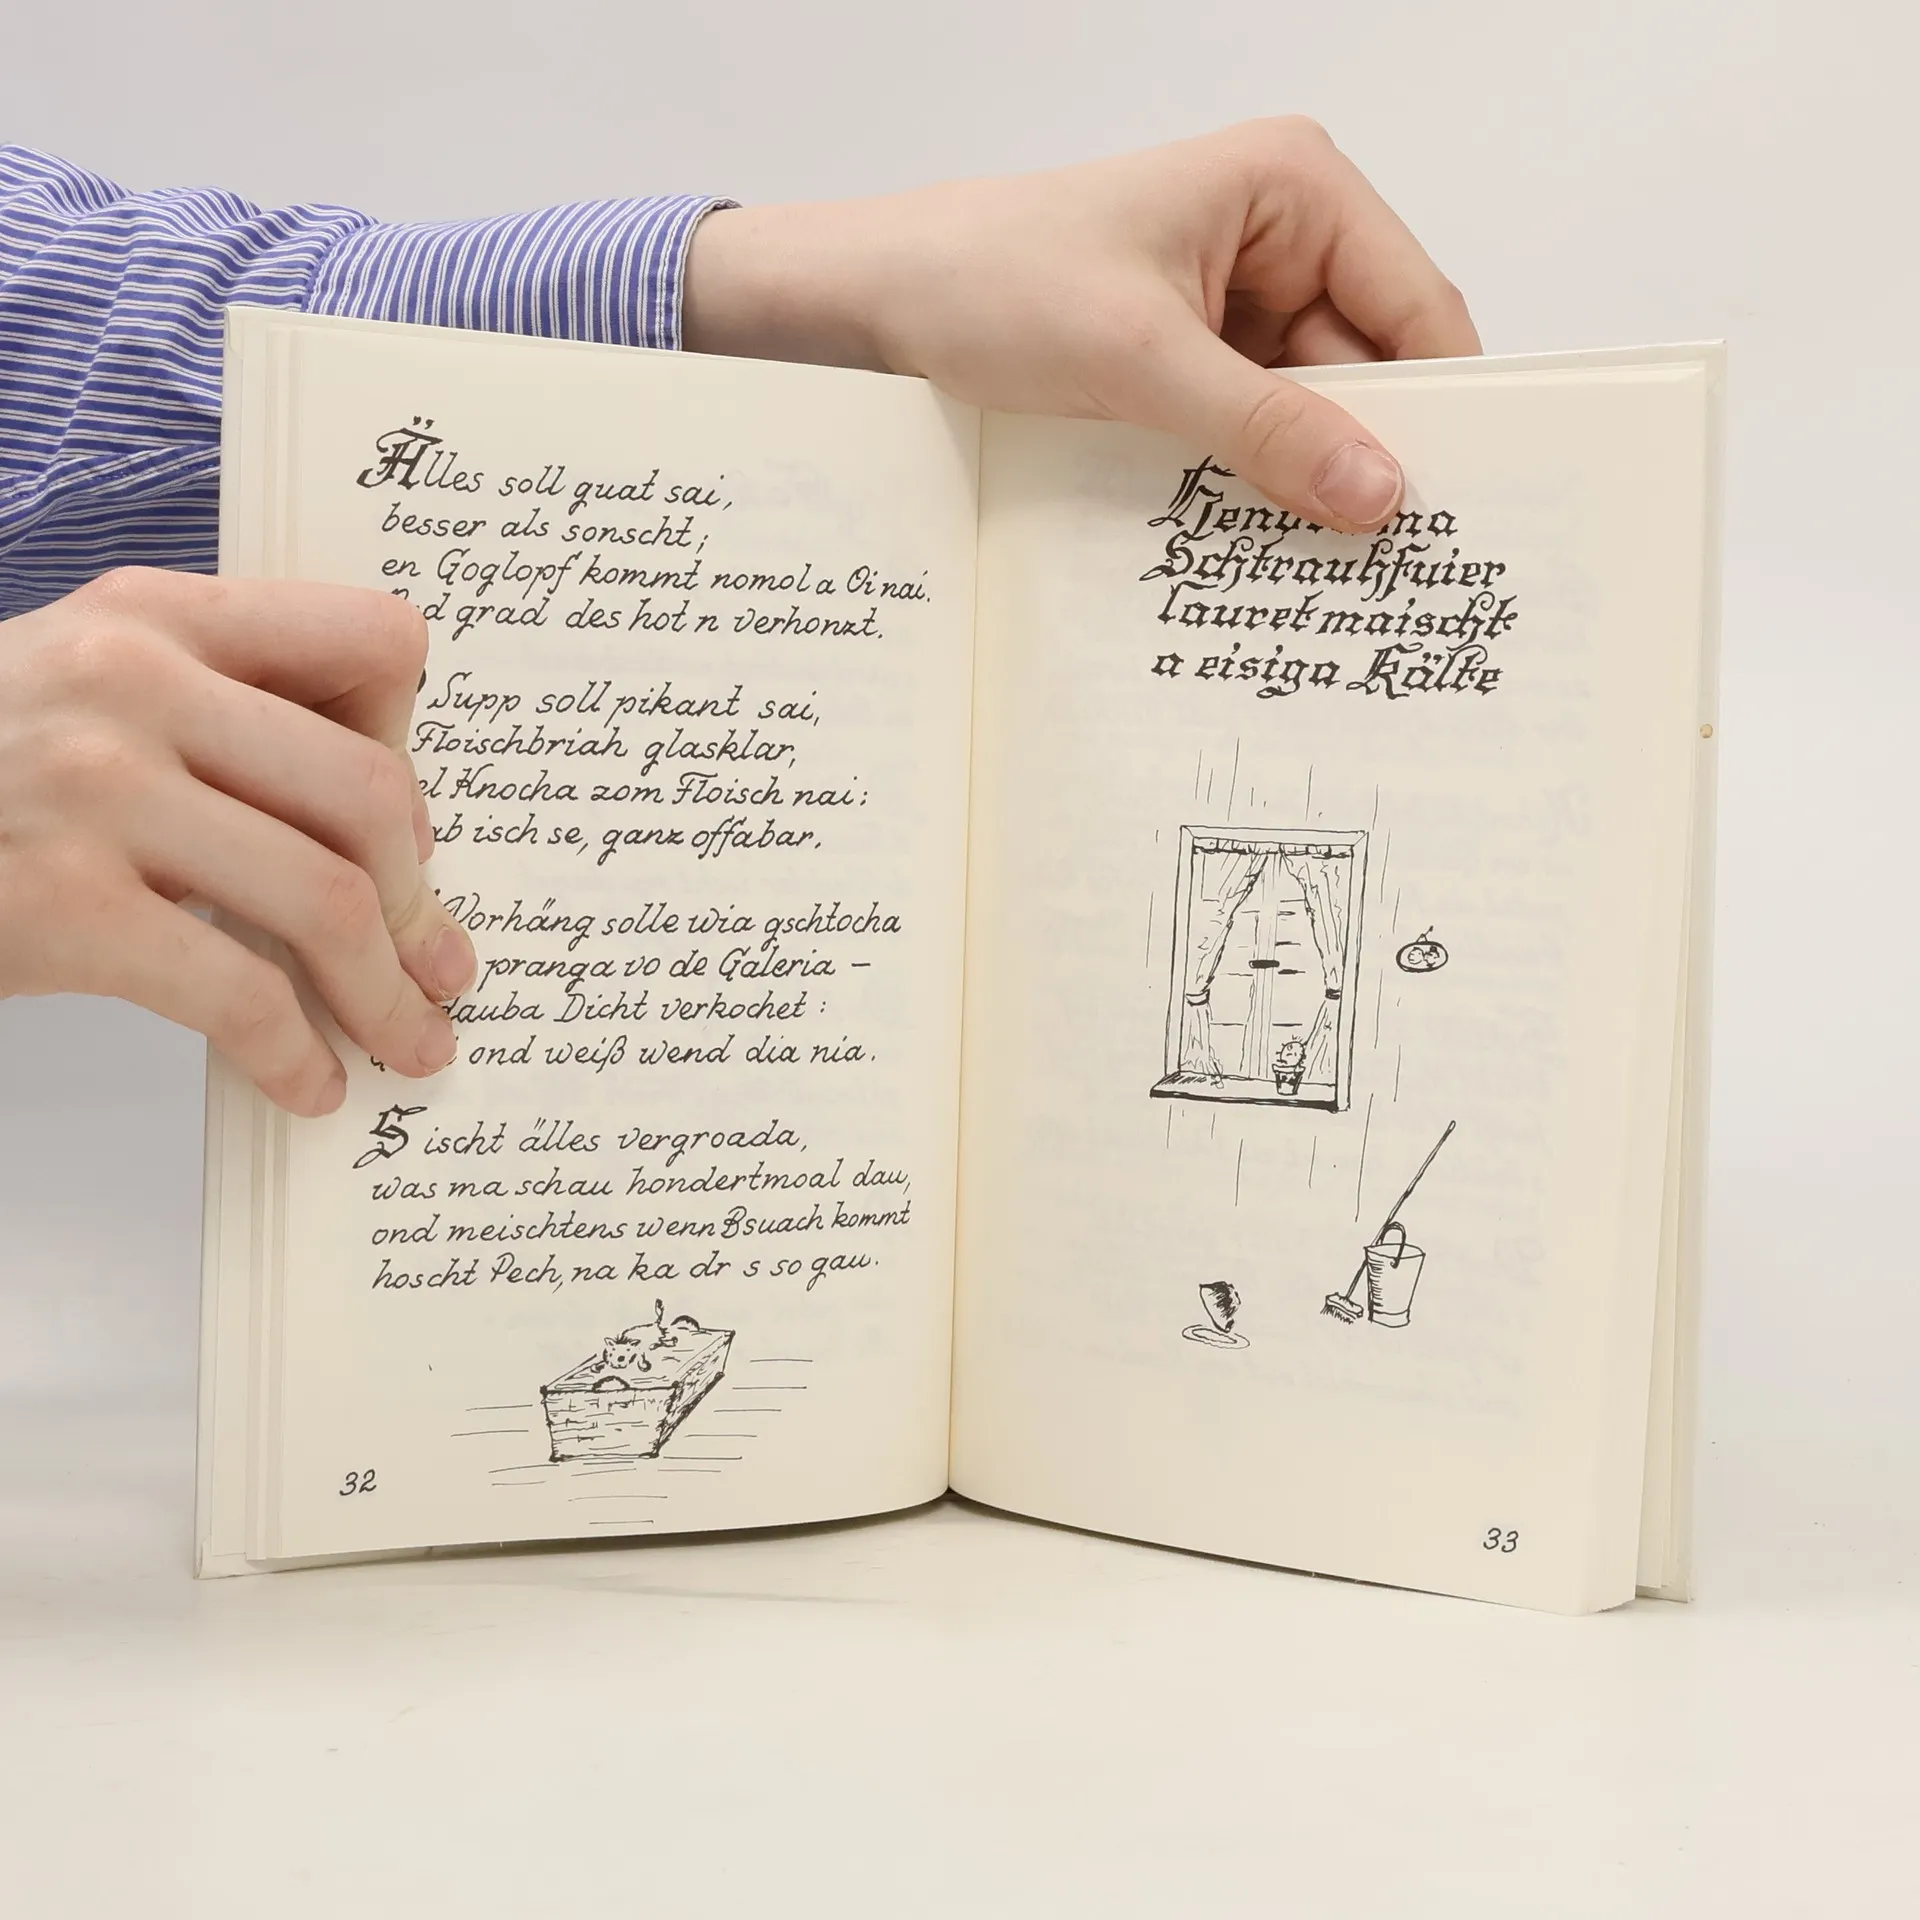 Älles soll guat sai,
besser als sonscht;
en Goglopf kommt nomol a Oi nai.
grad des hot n verhonzt.
Supp soll pikant sai,
Floischbriah glasklar,
Knocha zom Floisch nai:
isch se, ganz offabar.
Vorhäng solle wia gschtocha
pranga vo de Galeria –
dauba Dicht verkochet:
ond weiß wend dia nia.
S ischt älles vergroada,
was ma schau hondertmoal dau,
ond meischtens wenn Bsuach kommt
hoscht Pech, na ka dr s so gau.
32
ma
Schtrauhfuier
lauret maischt
a eisiga Kälte
33